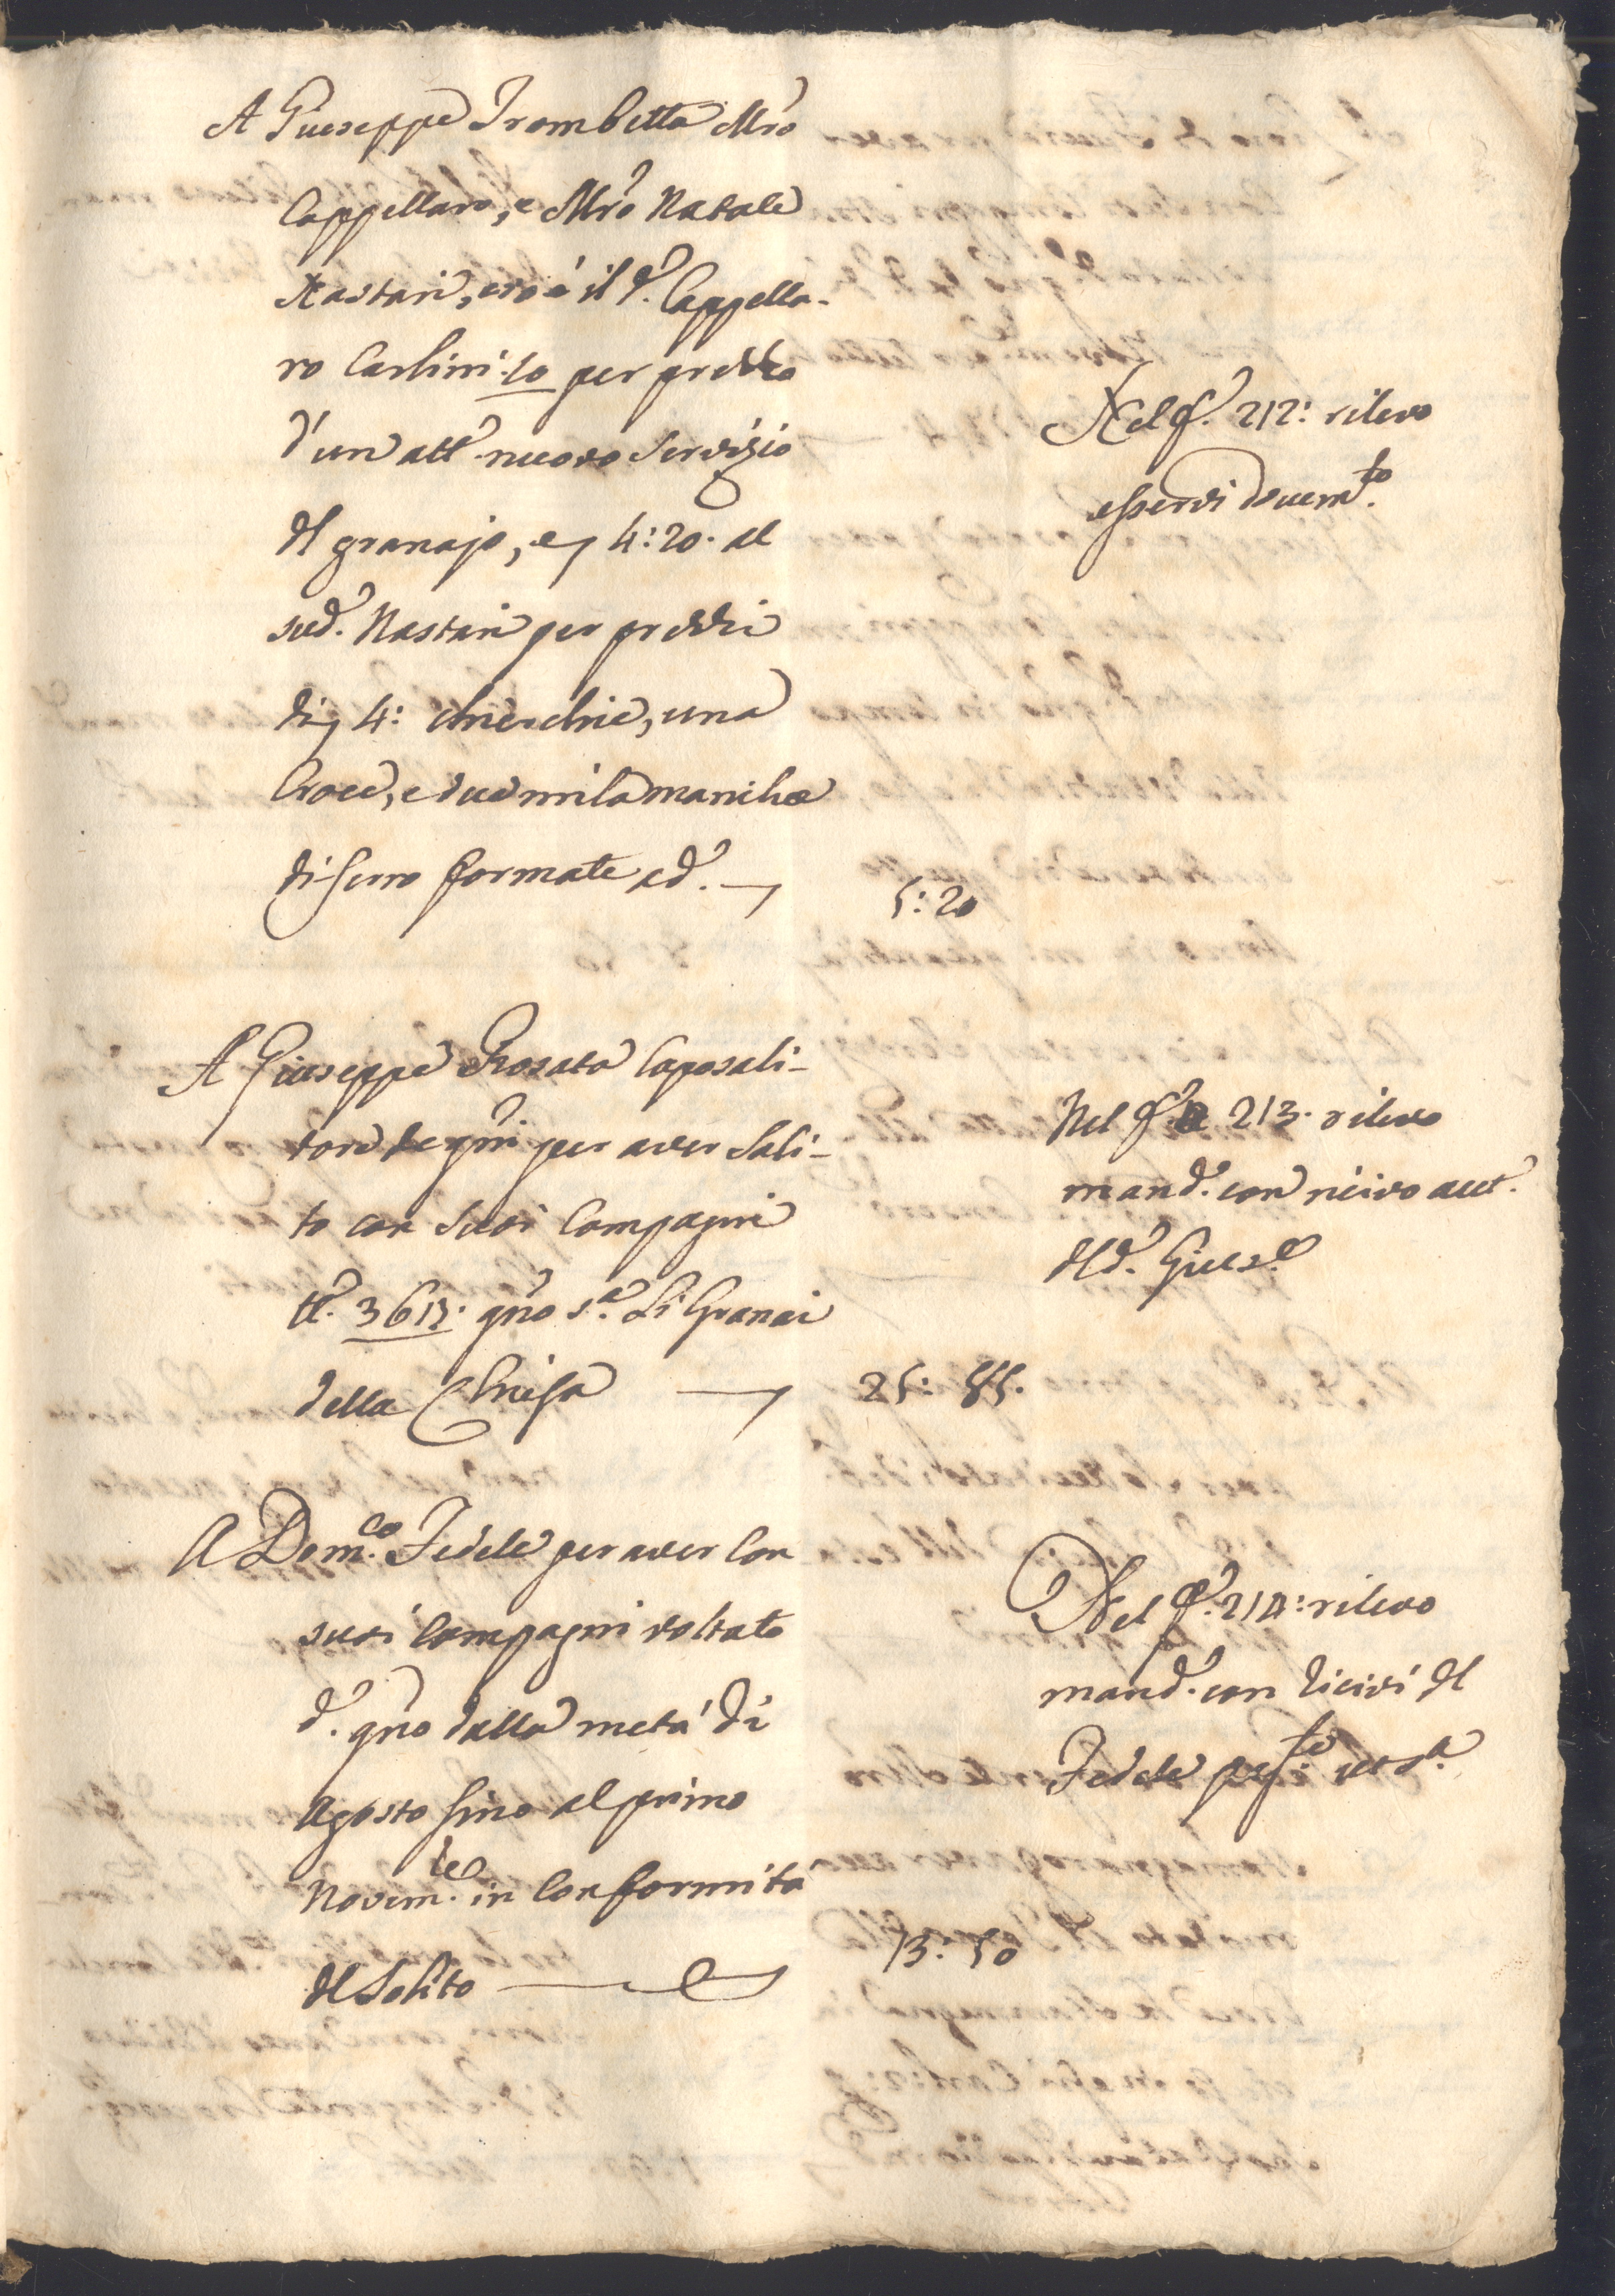 A Giuseppe Trombetta Mro
Cappellaro, e Mro Natale
Nastari, cioè il d. Cappella-
ro Carlini 10 per prezzo
d'un altº nuovo servizio
del granajo, e 4:20. al
sud. Nastari per prezzi
di 4: chierchie, una
Croce, e due mila maniche
di ferro formate ad.
5:20
Nel fº 212: rilevo
essersi dovemto.
A Giuseppe Rosato Caposali-
tore de grni per aver sali-
to con suoi Compagni
tt. 3613. grno s.a li Granai
della Chiesa
25: 85.
Nel fº 213. rilevo
mand. con ricivo aut.
del d. Gius.e
A Dom.co Fedele per aver con
suoi Compagni voltato
d. grno dalla metà di
Agosto sino al primo
Novem.e in conformità
del solito
13: 50
Nel fº 214: rilevo
mand. con ricivi del
Fedele ut s.a